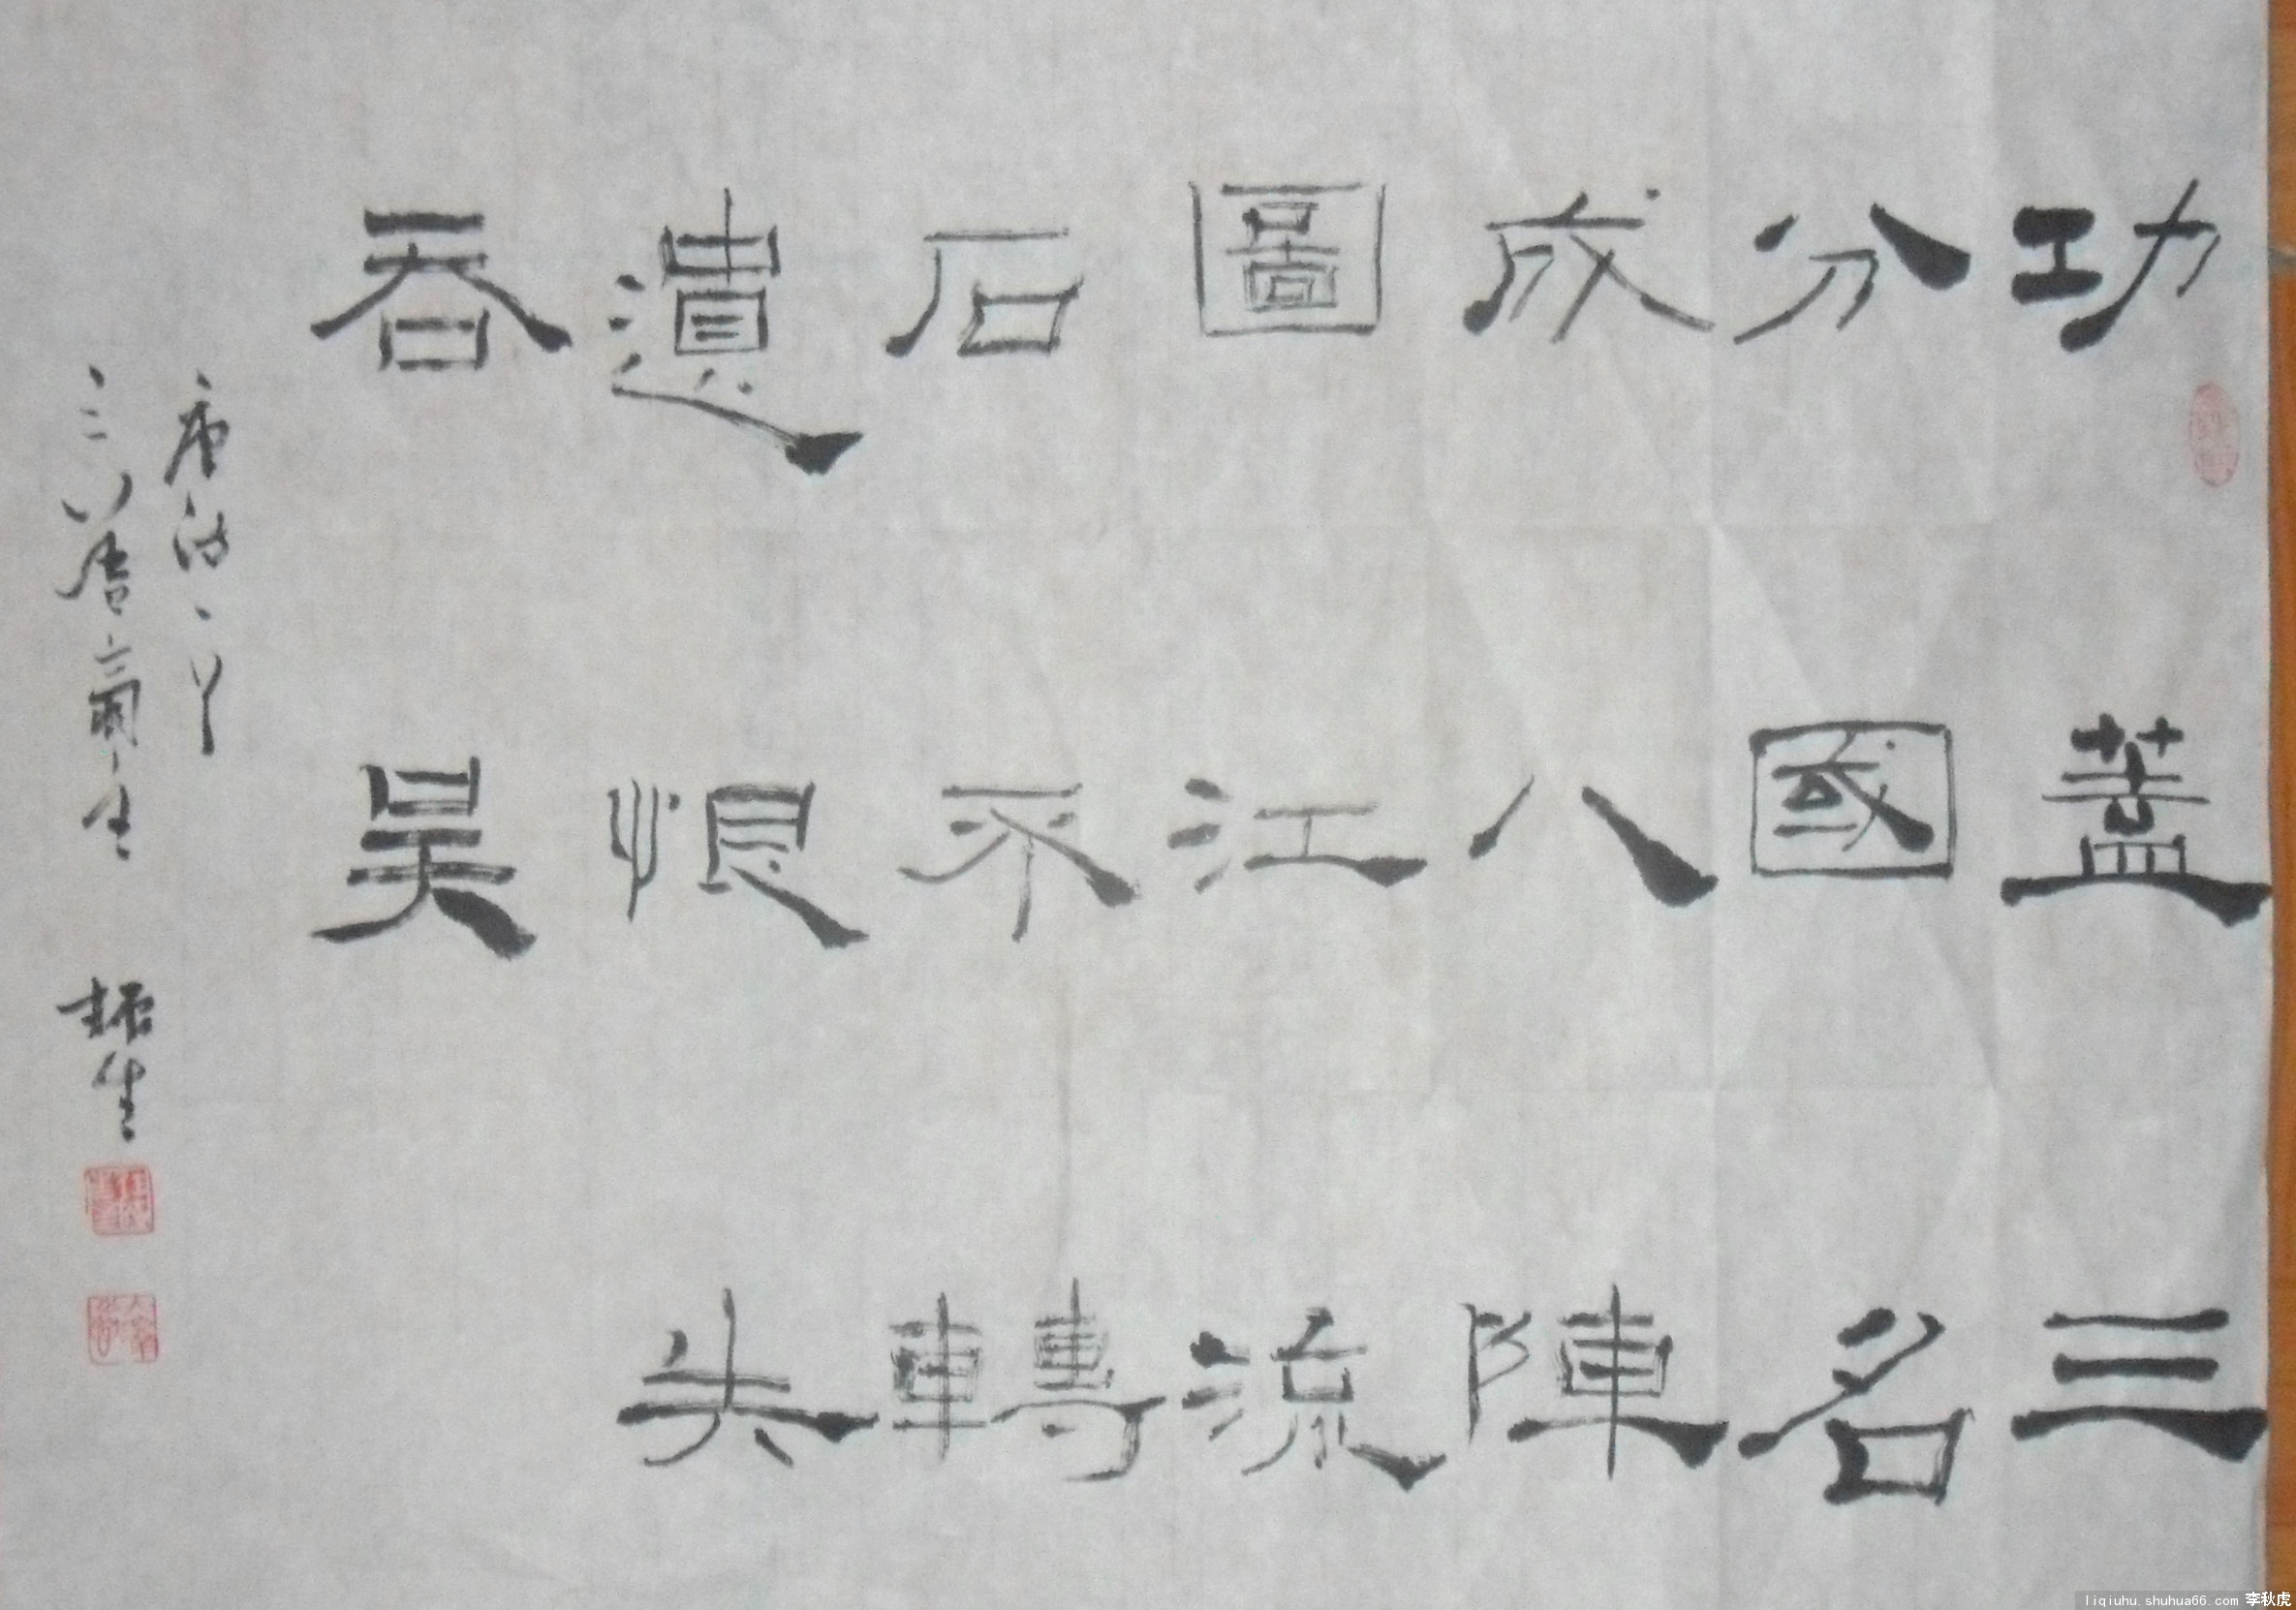 功蓋三
分國名
成八陣
圖江流
石不轉
遺恨失
吞吳
唐詩
振生
liqiuhu.shuhua66.com 李秋虎